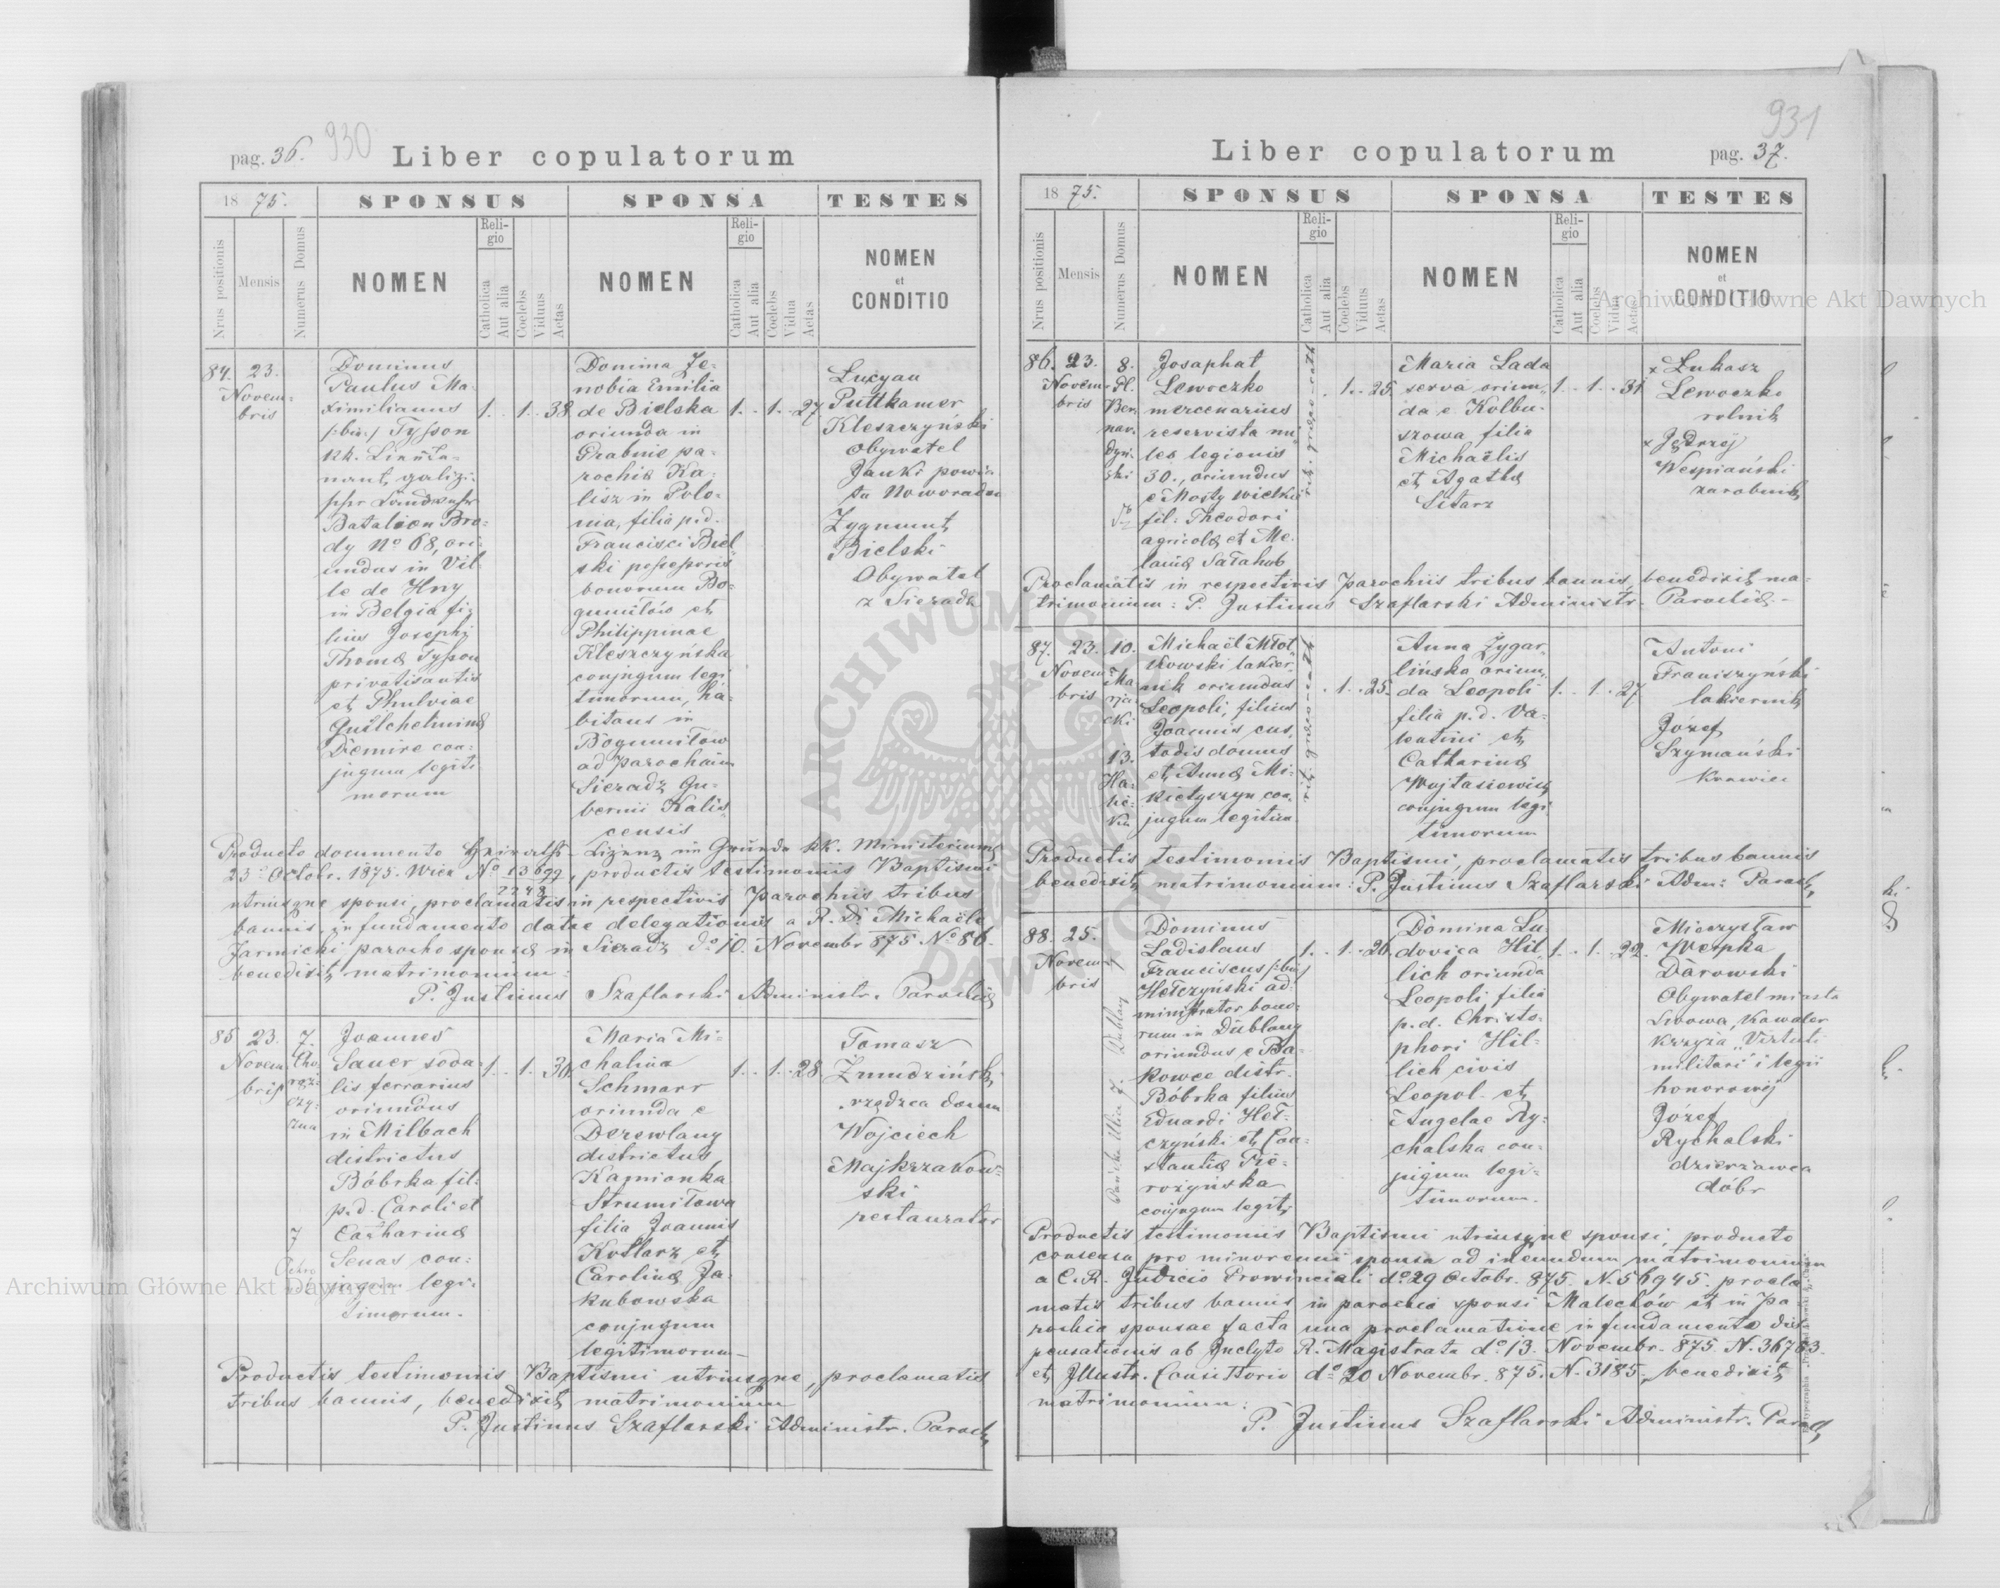 pag. 36. 930
Liber copulatorum
1875.
SPONSUS
SPONSA
TESTES
Nrus positionis
Mensis
Numerus Domus
NOMEN
Religio
Catholica
Aut alia
Coelebs
Viduus
Aetas
NOMEN
Religio
Catholica
Aut alia
Coelebs
Vidua
Aetas
NOMEN
et
CONDITIO
84. 23.
Novem-
bris
Dominus
Paulus Ma-
ximilianus
/:bin:/ Tysson
kk. Lieute-
nant, galizi-
scher Landwehr
Batalion Bro-
dy No 68, ori-
undus in Vil-
le de Huy
in Belgia fi-
lius Josephi
Thomæ Tysson
privatisantis
et Phulviae
Guilchelminæ
Demire con-
jugum legiti-
morum
1. 1. 38.
Domina Ze-
nobia Emilia
de Bielska
oriunda in
Grabnie pa-
rochiæ Ka-
lisz in Polo-
nia, filia p.d.
Francisci Biel-
ski possessoris
bonorum Bo-
gumiłów et
Philippinae
Kleszczyńska
conjugum legi-
timorum, ha-
bitans in
Bogumiłów
ad parochiam
Sieradz Gu-
bernii Kalis-
censis
1. 1. 27
Lucyan
Puttkamer
Kleszczyński
Obywatel
Janki powia-
tu Noworadom
Zygmunt
Bielski
Obywatel
z Sieradz
Producto documento Heiraths-Lizenz im Grunde kk. Ministeriums
23. Octobr. 1875. Wien No 13672/2248, productis testimoniis Baptismi
utriusque sponsi, proclamatis in respectivis Parochiis tribus
bannis, in fundamento datae delegationis a R. D. Michaele
Jarnicki parocho sponsæ in Sieradz do 10. Novembr 875 No 86.
benedixit matrimonium:
P. Justinus Szaflarski Administr. Parochiæ
85 23.
Novem-
bris
7.
Cho-
rąż-
czy-
zna
Joannes
Sauer soda-
lis ferrarius
oriundus
in Milbach
districtus
Bóbrka fil:
p.d. Caroli et
Catharinæ
Senas con-
jugum legi-
timorum.
1. 1. 30
Maria Mi-
chalina
Schmarr
oriunda e
Derewlany
districtus
Kamionka
Strumiłowa
filia Joannis
Kotlarz et
Carolinæ Ja-
kubowska
conjugum
legitimorum
1. 1. 28
Tomasz
Żmudziński
rządzca domu
Wojciech
Majkrzakow-
ski
restaurator
Productis testimoniis Baptismi utriusque, proclamatis
tribus bannis, benedixit matrimonium
P. Justinus Szaflarski Administr. Paroch.
931
Liber copulatorum
pag. 37.
1875.
SPONSUS
SPONSA
TESTES
Nrus positionis
Mensis
Numerus Domus
NOMEN
Religio
Catholica
Aut alia
Coelebs
Viduus
Aetas
NOMEN
Religio
Catholica
Aut alia
Coelebs
Vidua
Aetas
NOMEN
et
CONDITIO
86. 23.
Novem-
bris
8.
Pl.
Ber-
nar-
dyń-
ski
Josaphat
Lewoczko
mercenarius
reservista mi-
les legionis
30., oriundus
e Mosty wielkie
fil: Theodori
agricolæ et Me-
laniæ Sałahub
rit. græco-cath
1. 25.
Maria Lada
serva oriun-
da e Kolbu-
szowa filia
Michaëlis
et Agathæ
Sitarz
1. 1. 31
x Łukasz
Lewoczko
rolnik
x Jędrzej
Wespiański
zarobnik
Proclamatis in respectivis parochiis tribus bannis, benedixit ma-
trimonium: P. Justinus Szaflarski Administr. Parochiæ
87. 23.
Novem-
bris
10.
Ma-
ryac-
ki
13.
Ha-
lic-
ka
Michaël Młot-
kowski lakier-
nik oriundus
Leopoli, filius
Joannis cus-
todis domus
et Annæ Mi-
kietyszyn con-
jugum legitim.
rit. græco-cath
1. 25.
Anna Zygar-
lińska oriun-
da Leopoli
filia p.d. Va-
lentini et
Catharinæ
Wojtasiewicz
conjugum legi-
timorum
1. 1. 27
Antoni
Franiszyński
lakiernik
Józef
Szymański
krawiec
Productis testimoniis Baptismi, proclamatis tribus bannis
benedixit matrimonium: P. Justinus Szaflarski Adm: Paroch,
88. 25.
Novem-
bris
Dominus
Ladislaus
Franciscus /:bin:/
Hełczyński ad-
ministrator bono-
rum in Dublany
oriundus e Ba-
kowce distr.
Bóbrka filius
Eduardi Heł-
czyński et Con-
stantiæ Pie-
rożyńska
conjugum legit,
1. 1. 26
Domina Lu-
dovica Hil-
lich oriunda
Leopoli, filia
p.d. Christo-
phori Hil-
lich civis
Leopol. et
Angelae Ry-
chalska con-
jugum legi-
timorum.
1. 1. 22.
Mieczysław
Weryha
Darowski
Obywatel miasta
Lwowa, Kawaler
Krzyża "Virtuti
militari" i legii
honorowej
Józef
Rychalski
dzierżawca
dóbr
Productis testimoniis Baptismi utriusque sponsi, producto
consensu pro minorenni sponsa ad ineundum matrimonium
a C.R. Judicio Prowinciali do 29 Octobr. 875. N. 56945. procla-
matis tribus bannis in parochia sponsi Malechów et in pa-
rochia sponsae facta una proclamatione in fundamento dis-
pensationis ab Inclyto R. Magistratu do 13. Novembr. 875. N. 36783.
et Illustr. Consistorio do 20 Novembr. 875. N. 3185, benedixit
matrimonium:
P. Justinus Szaflarski Administr. Paroch,
Archiwum Główne Akt Dawnych
Archiwum Główne Akt Dawnych